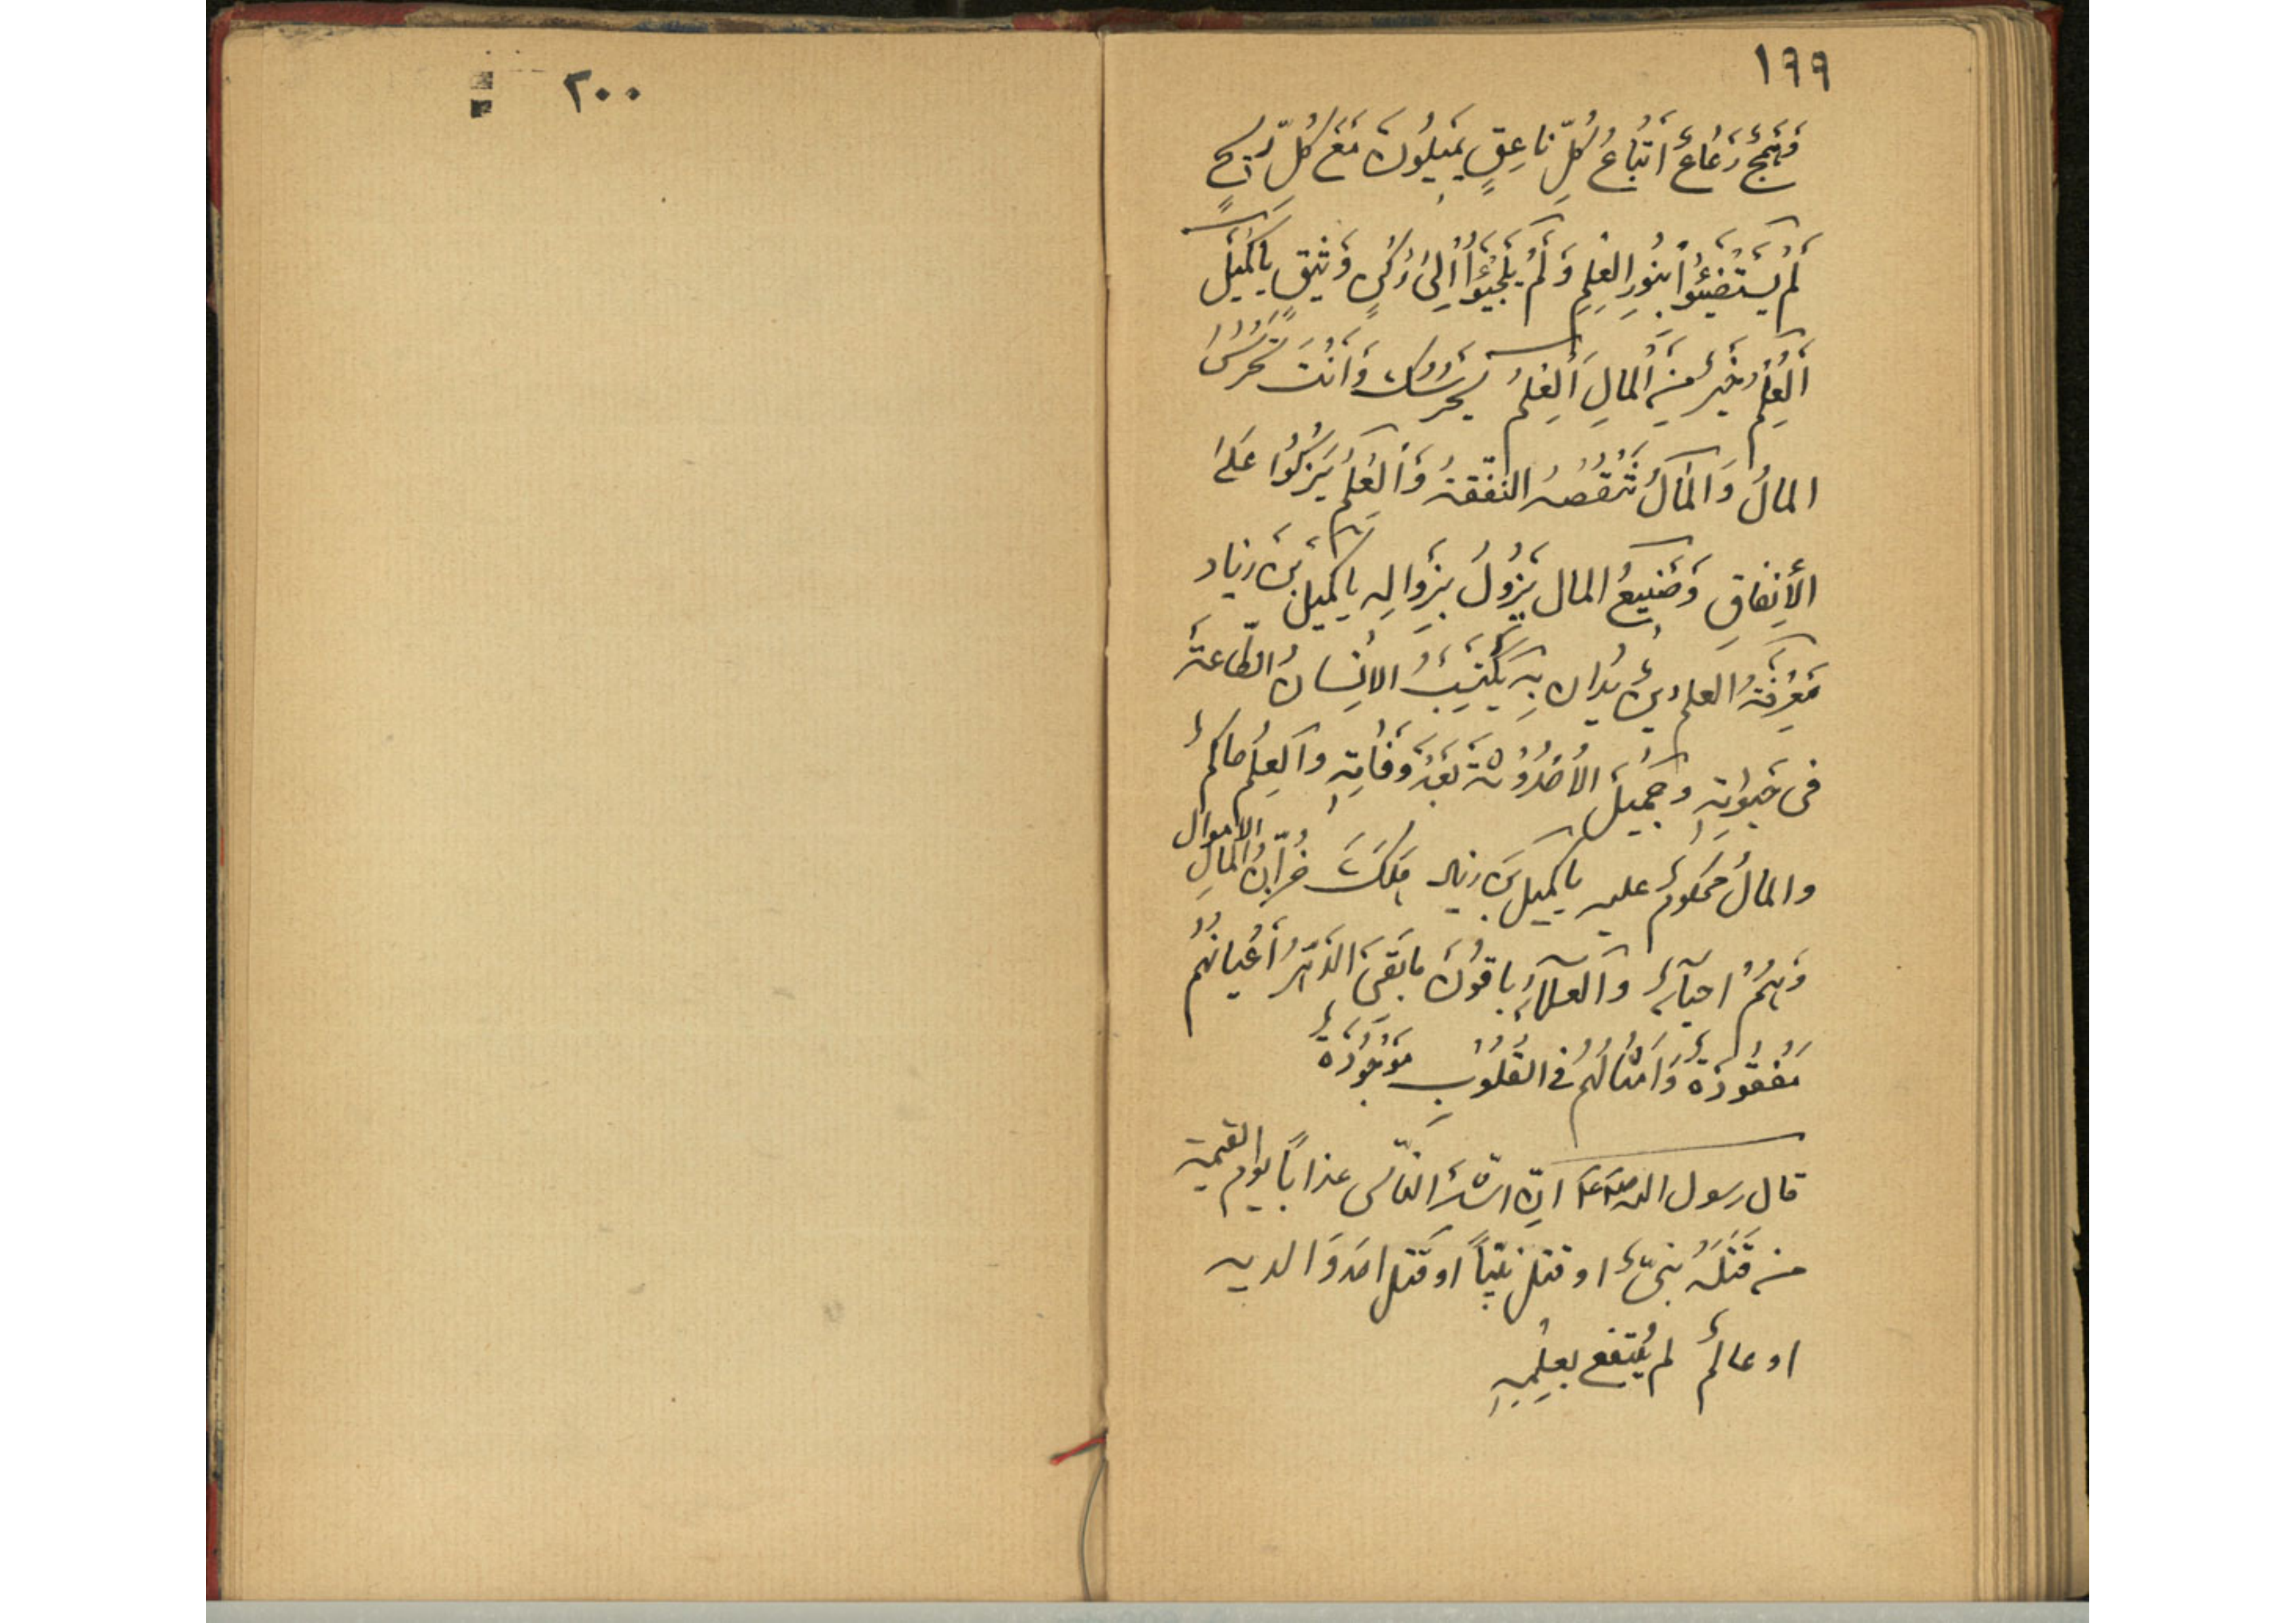 ١٩٩
فَهَمَجٌ رَعَاعٌ أَتْبَاعُ كُلِّ نَاعِقٍ يَمِيلُونَ مَعَ كُلِّ رِيحٍ
لَمْ يَسْتَضِيئُوا بِنُورِ الْعِلْمِ وَلَمْ يَلْجَئُوا إِلَى رُكْنٍ وَثِيقٍ يَا كُمَيْلُ
اَلْعِلْمُ خَيْرٌ مِنَ الْمَالِ اَلْعِلْمُ يَحْرُسُكَ وَأَنْتَ تَحْرُسُ
المالُ وَالْمَالُ تَنْقُصُهُ النَّفَقَةُ وَالْعِلْمُ يَزْكُوا عَلَى
الأِنفاقِ وَصَنِيعُ المال يَزُولُ بِزَوالِهِ يا كميل بنَ زياد
مَعْرِفَةُ العلم دِينٌ يُدان بِهِ يَكْسِبُ الانِسانُ الطّاعَةَ
فى حَيوتِهِ وجَمِيلَ الاُحْدُوثَةِ بَعْدَ وَفاتِهِ والْعِلْمُ حاكمٌ
والمالُ محكومٌ عليه يا كميل بنَ زياد هَلَكَ خُزّانُ المالِ الاموال
وَهُمْ احيآءٌ والعلمآءُ باقونَ ما بَقِىَ الدّهرُ أَعْيانُهُمْ
مَفْقُودَةٌ وَاَمْثالُهُم فى القُلُوبِ مَوْجُودَةٌ
قال رسول الله صلعم انّ اشدّ النّاس عذاباً يوم القيمة
من قَتَلَهُ نبىٌّ او قتل نبيّاً او قتل احد وَالديه
او عالمٌ لم يُنتفع بعلِمهِ
٢٠٠